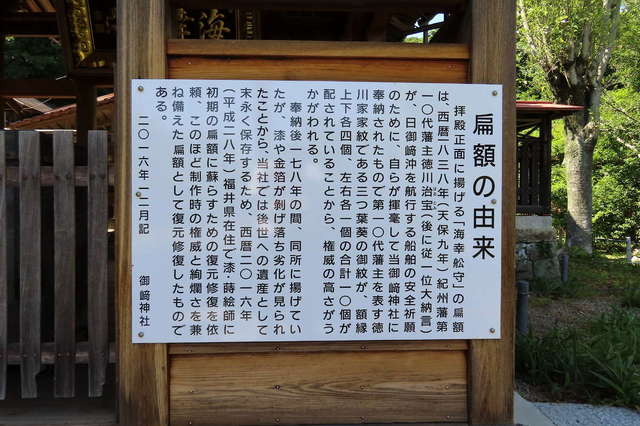 海
扁額の由来
拝殿正面に揚げる「海幸舩守」の扁額
は、西暦一八三八年(天保九年)紀州藩第
一〇代藩主徳川治宝(後に従一位大納言)
が、日御﨑沖を航行する船舶の安全祈願
のために、自らが揮毫して当御﨑神社に
奉納されたもので第一〇代藩主を表す徳
川家家紋である三つ葉葵の御紋が、額縁
上下各四個、左右各一個の合計一〇個が
配されていることから、権威の高さがう
かがわれる。
奉納後一七八年の間、同所に揚げてい
たが、漆や金箔が剥げ落ち劣化が見られ
たことから、当社では後世への遺産として
末永く保存するため、西暦二〇一六年
(平成二八年)福井県在住で漆・蒔絵師に
初期の扁額に蘇らすための復元修復を依
頼、このほど制作時の権威と絢爛さを兼
ね備えた扁額として復元修復したもので
ある。
二〇一六年一二月記
御﨑神社